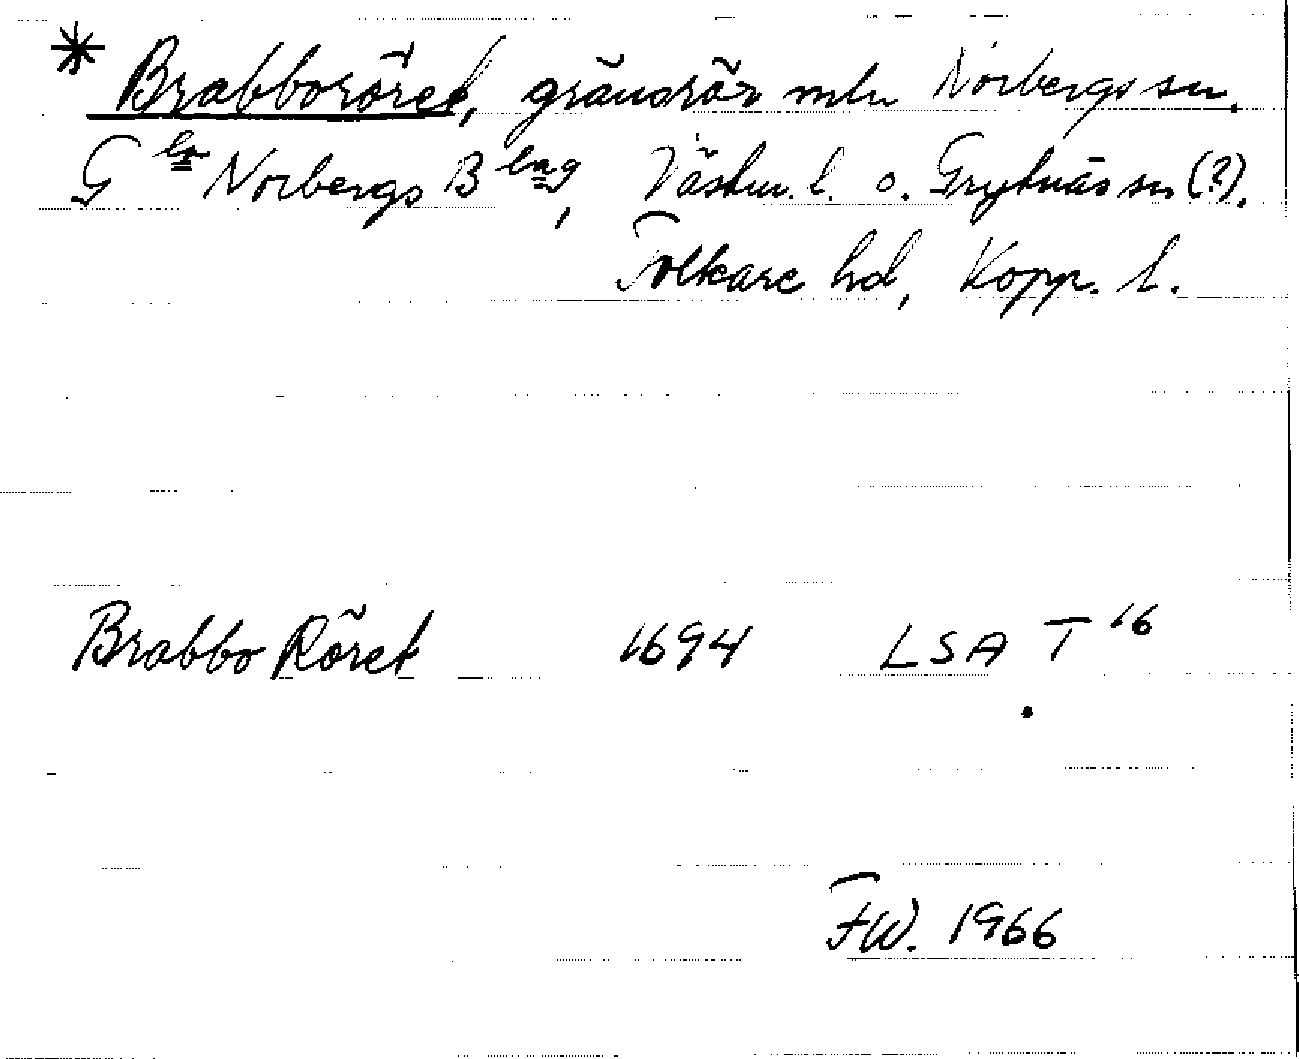 * Brabboröret, gränsrör mln Norbergs sn.
Gla Norbergs Blag, Västm. l. o. Grytnäs sn (?).
Folkare hd, Kopp. l.
Brabbo Röret 1694 LSA T 16
F.W. 1966